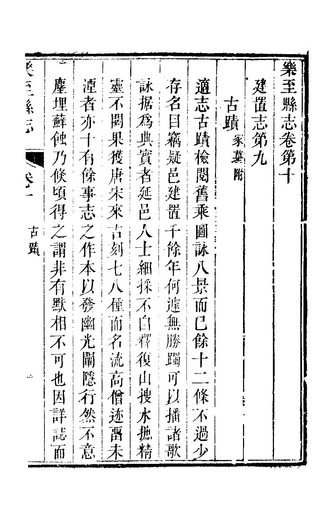 樂至縣志卷第十
建置志第九
古蹟 冢墓附
適志古蹟檢閱舊乘圖詠八景而已餘十二條不過少
存名目竊疑邑建置千餘年何遽無勝躅可以播諸歌
詠據為典實者延邑人士細採不自釋復山搜水摭精
靈不閟果獲唐宋來古刻七八種而名流高僧迹畱未
湮者亦十有餘事志之作本以發幽光闡隱行然不意
塵埋蘚蝕乃倏頃得之謂非有默相不可也因詳誌而
樂至縣志
卷十
古蹟